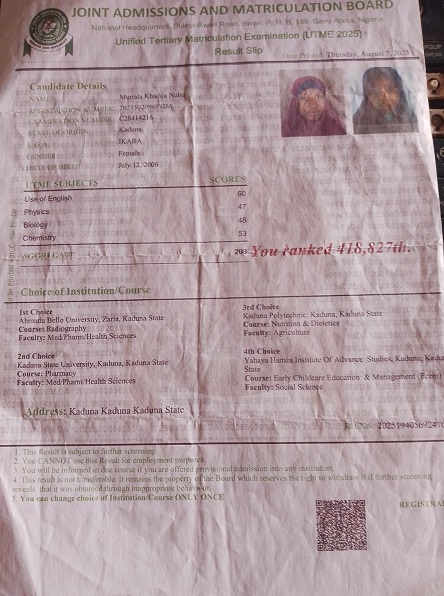 JOINT ADMISSIONS AND MATRICULATION BOARD
National Headquarters, Suleja-Bwari Road, Bwari, P. M. B. 189, Garki Abuja, Nigeria
Unified Tertiary Matriculation Examination (UTME 2025)
Result Slip
Date Printed: Thursday, August 7, 2025
Candidate Details
NAMES: Murtala Khadija
REGISTRATION NUMBER:
EXAMINATION NUMBER: C28414216
STATE OF ORIGIN: Kaduna
L.G.A: IKARA
GENDER: Female
DATE OF BIRTH: July 12, 2006
UTME SUBJECTS SCORES
Use of English 60
Physics 47
Biology 48
Chemistry 53
AGGREGATE 208 You ranked 418,827th.
Choice of Institution/Course
1st Choice
Ahmadu Bello University, Zaria, Kaduna State
Course: Radiography
Faculty: Med/Pharm/Health Sciences
2nd Choice
Kaduna State University, Kaduna, Kaduna State
Course: Pharmacy
Faculty: Med/Pharm/Health Sciences
3rd Choice
Kaduna Polytechnic, Kaduna, Kaduna State
Course: Nutrition & Dietetics
Faculty: Agriculture
4th Choice
Yahaya Hamza Institute Of Advance Studies, Kaduna, Kadu
State
Course: Early Childcare Education & Management
Faculty: Social Science
Address: Kaduna Kaduna Kaduna State
1. This Result is subject to further screening.
2. You CANNOT use this Result for employment purposes.
3. You will be informed in due course if you are offered provisional admission into any institution.
4. This result is not transferable. It remains the property of the Board which reserves the right to withdraw it if further screening
reveals that it was obtained through inappropriate behaviour.
5. You can change choice of Institution/Course ONLY ONCE
REGISTRA